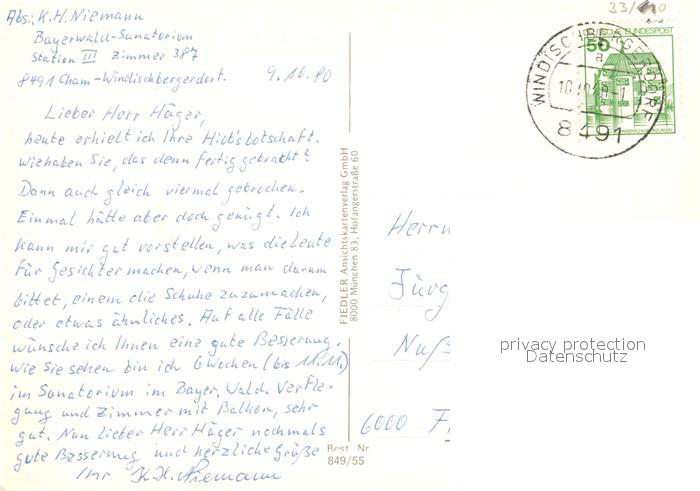 Abs: K.H. Niemann
Bayerwald-Sanatorium
Station III Zimmer 387
8491 Cham-Windischbergerdorf. 9.10.80
Lieber Herr Häger,
heute erhielt ich Ihre Hiobsbotschaft.
wie haben Sie, das denn fertig gebracht?
Dann auch gleich viermal gebrochen.
Einmal hätte aber doch genügt. Ich
kann mir gut vorstellen, was die Leute
für Gesichter machen, wenn man darum
bittet, einem die Schuhe zuzumachen,
oder etwas ähnliches. Auf alle Fälle
wünsche ich Ihnen eine gute Besserung.
wie Sie sehen bin ich 6 Wochen (bis 11.11.)
im Sanatorium im Bayer. Wald. Verfle-
gung und Zimmer mit Balkon, sehr
gut. Nun lieber Herr Häger nochmals
gute Besserung und herzliche Grüße
Ihr K.H. Niemann
FIEDLER Ansichtskartenverlag GmbH
8000 München 83, Hofangerstraße 60
Best. Nr.
849/55
33/
DEUTSCHE BUNDESPOST
50
WINDISCHBERGERDORF
a
8491
Herrn
Jürg
Nuß
6000 F
privacy protection
Datenschutz